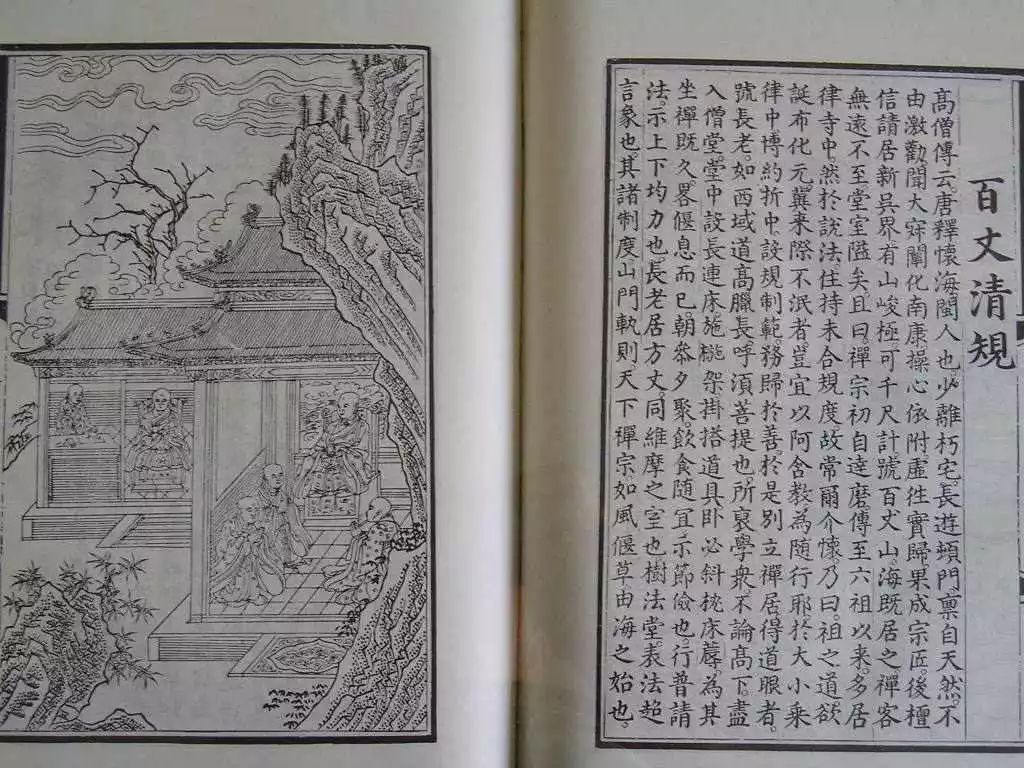 百丈清規
高僧傳云。唐釋懷海閩人也。少離朽宅。長遊頓門。稟自天然。不
由激勸。聞大寂闡化南康。操心依附。虛徃實歸。果成宗匠。後檀
信請居新吳界。有山峻極可千尺計。號百丈山。海既居之。禪客
無遠不至。堂室隘矣。且曰。禪宗初自達磨傳至六祖以來。多居
律寺中。然於說法住持未合規度。故常爾介懷。乃曰。祖之道欲
誕布化元。冀来際不泯者。豈宜以阿含教為隨行耶。於大小乘
律中博約折中。設規制範。務歸於善。於是別立禪居。得道眼者。
號長老。如西域道高臘長。呼須菩提也。所裒學衆。不論高下。盡
入僧堂。堂中設長連床。施椸架。掛搭道具。臥必斜枕床蓐。為其
坐禪既久。畧偃息而已。朝叅夕聚。飲食隨宜。示節儉也。行普請
法。示上下均力也。長老居方丈。同維摩之室也。樹法堂。表法超
言象也。其諸制度。山門軌則。天下禪宗。如風偃草。由海之始也。